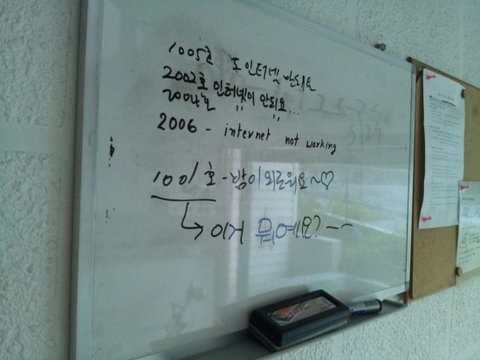 1005호 도 인터넷 안돼요
2002호 인터넷이 안되요...
2004호
2006 - internet not working
1001호 - 밤이 외로워요~♡
↳ 이거 뭐예요? ~~